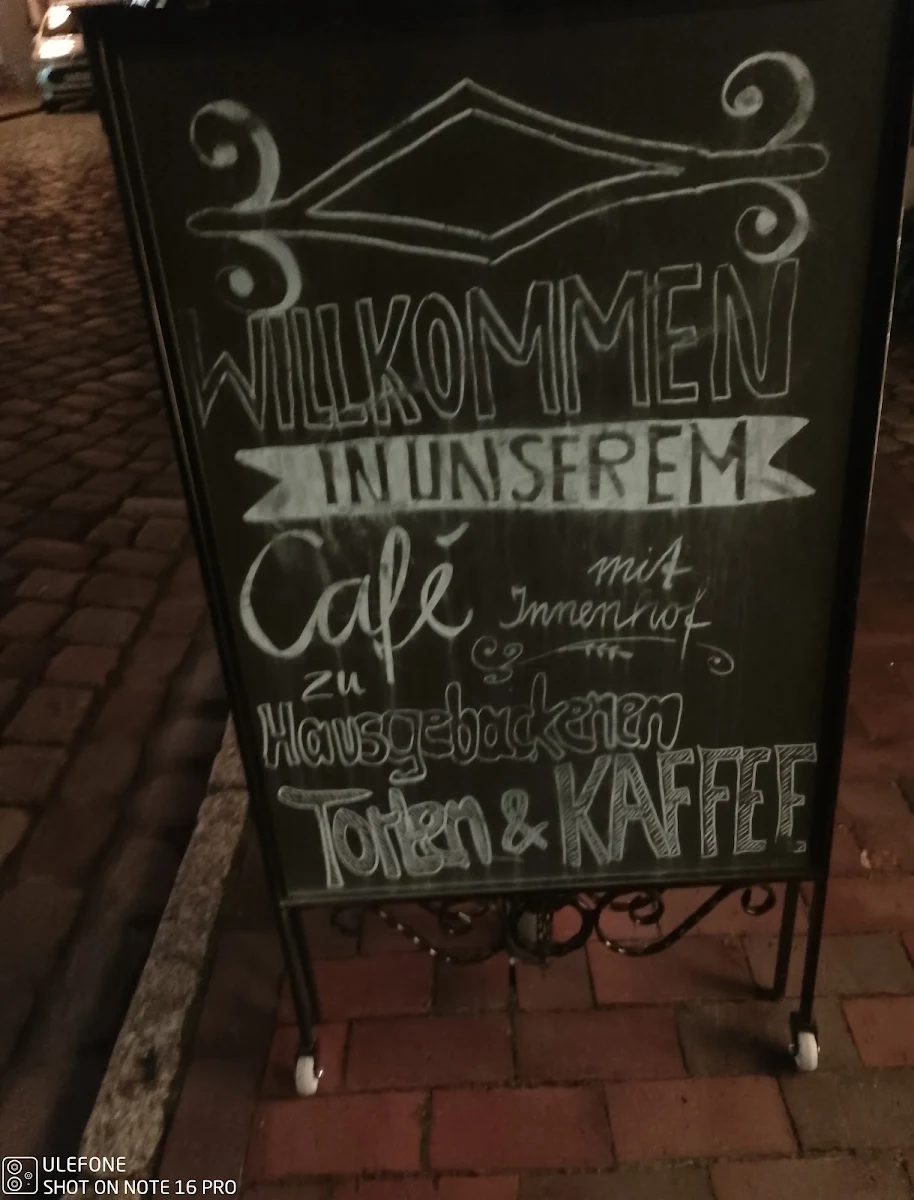 WILLKOMMEN
IN UNSEREM
Café mit
Innenhof
zu
Hausgebackenen
Torten & KAFFEE
ULEFONE
SHOT ON NOTE 16 PRO